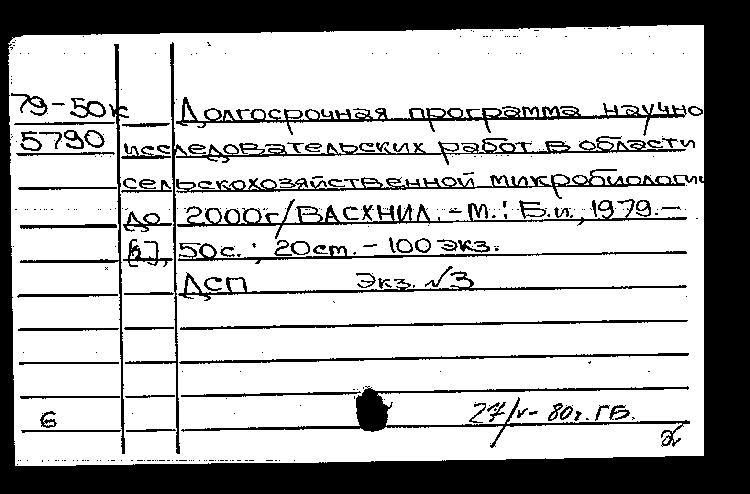 79-50к Долгосрочная программа научно
5790 исследовательских работ в области
сельскохозяйственной микробиологи
до 2000г/ВАСХНИЛ. - М.: Б.и., 1979. -
50с.; 20см. - 100 экз.
ДСП Экз. №3
6 27/V- 80г. ГБ.